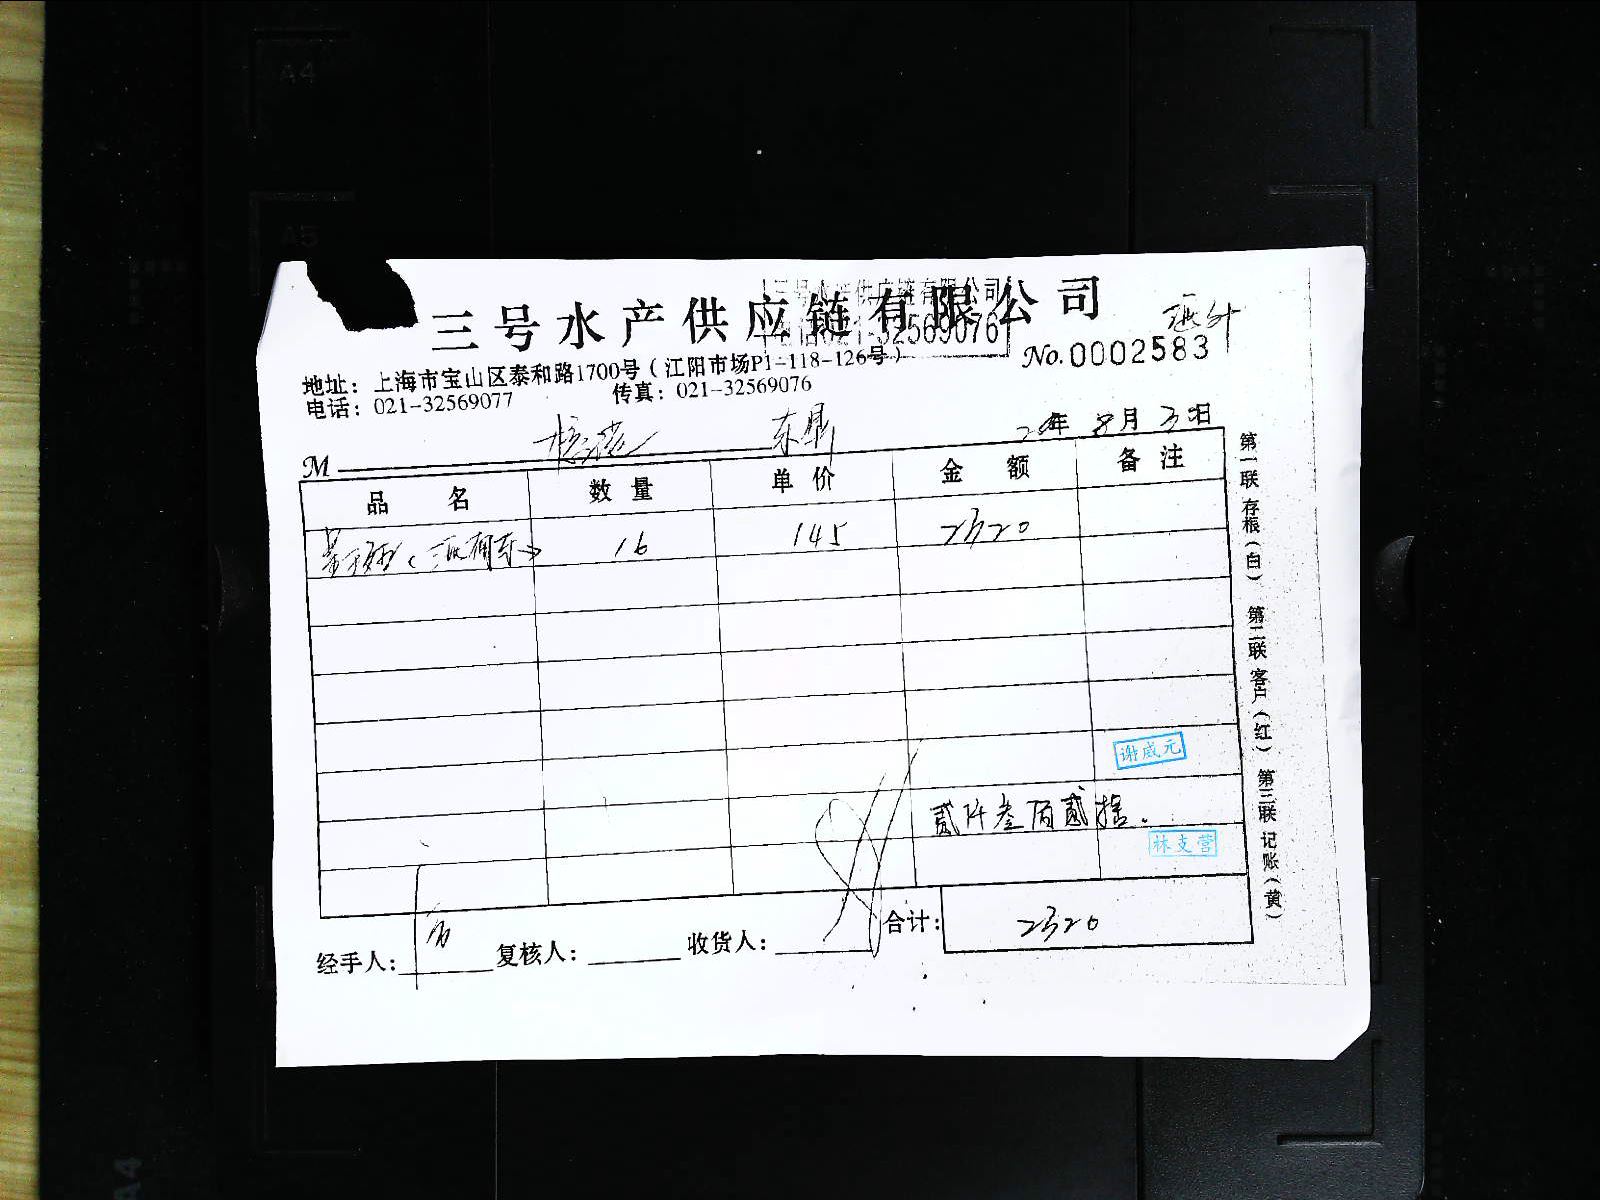 三号水产供应链有限公司
三号水产供应链有限公司
32569076
No.0002583
地址：上海市宝山区泰和路1700号（江阳市场P1-118-126号）
电话：021-32569077 传真：021-32569076
东鼎 20年 8月 3日
M
品 名 数 量 单 价 金 额 备 注
16 145 2320
谢威元
贰仟叁佰贰拾.
林支营
合计： 2320
经手人： 复核人： 收货人：
第一联 存根（白） 第二联 客户（红） 第三联 记账（黄）